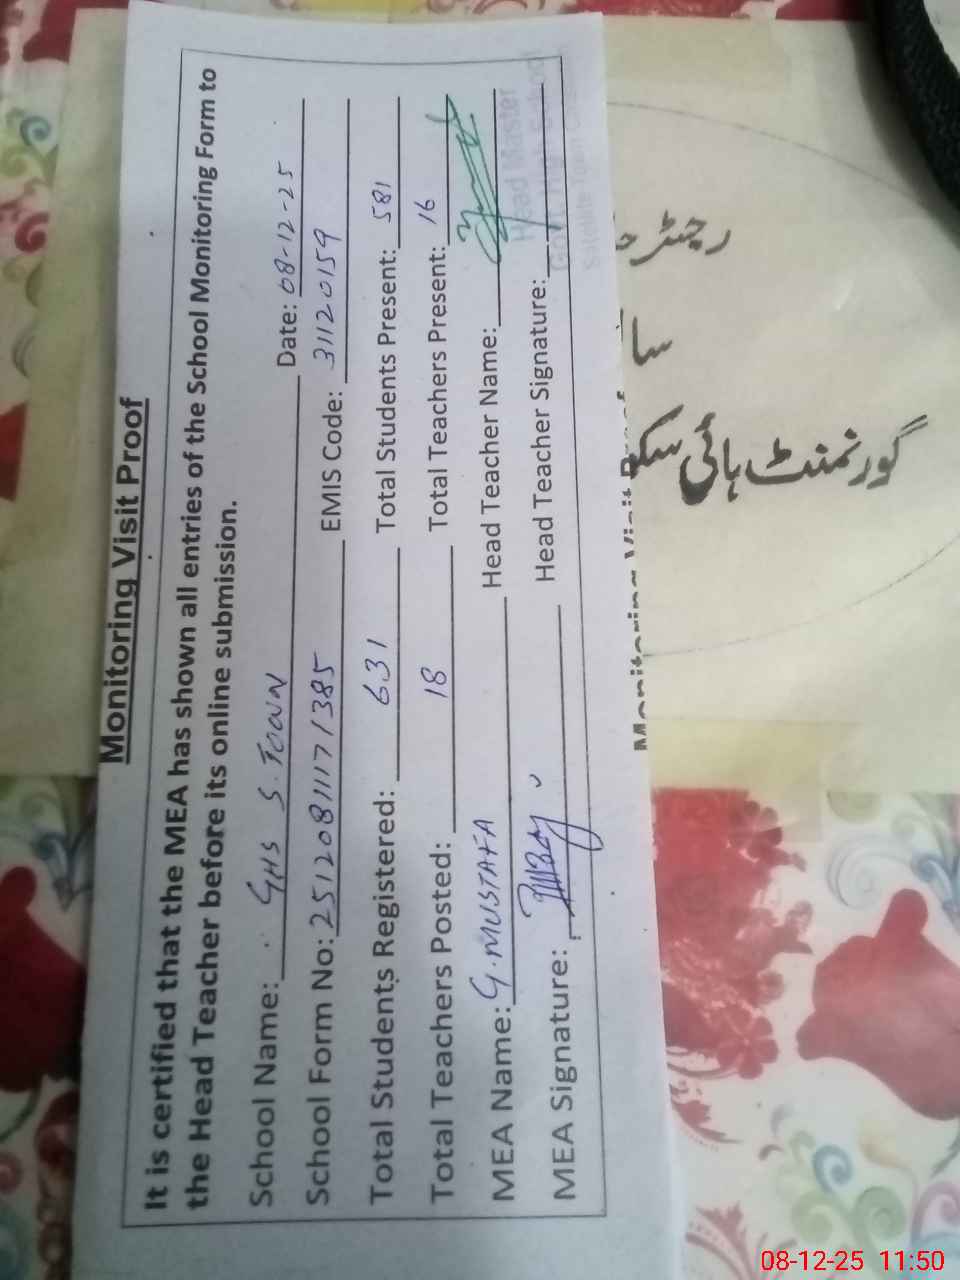 Monitoring Visit Proof
It is certified that the MEA has shown all entries of the School Monitoring Form to
the Head Teacher before its online submission.
School Name: GHS S.TOWN Date: 08-12-25
School Form No: 25120811171385 EMIS Code: 31120159
Total Students Registered: 631 Total Students Present: 581
Total Teachers Posted: 18 Total Teachers Present: 16
MEA Name: G.MUSTAFA Head Teacher Name:
MEA Signature: Head Teacher Signature:
Head Master
Govt. High School
Satellite Town
رجسٹر
سا
گورنمنٹ ہائی سکو
Monitoring Visit Proof
08-12-25 11:50